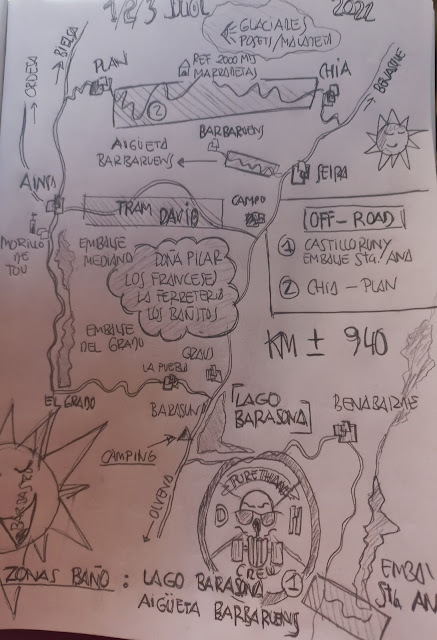 1/2/3 JUOL 2022
GLACIALES
POSETS/MALADETA
ORDESA
BIELSA
PLAN
REF. 2000 MTS
MARRADETAS
CHIA
BENASQUE
2
BARBARUENS
AIGÜETA
BARBARUENS
SEIRA
AINSA
TRAM DAVID
CAMPO
MORILLO
DE
TOU
EMBALSE
MEDIANO
DOÑA PILAR
LOS FRANCESES
LA FERRETERIA
LOS BAÑITOS
OFF-ROAD
1 CASTILLORUNY
EMBALSE STA. ANA
2 CHIA - PLAN
KM ± 940
EMBALSE
DEL GRADO
GRAUS
LA PUEBLA
EL GRADO
BARASONA
LAGO
BARASONA
BENABARRE
CAMPING
OLVENA
BARBASTRO
PURETHANE
D H
CREW
1
ZONAS BAÑO : LAGO BARASONA
AIGÜETA BARBARUENS
EMBAL
STA. AN